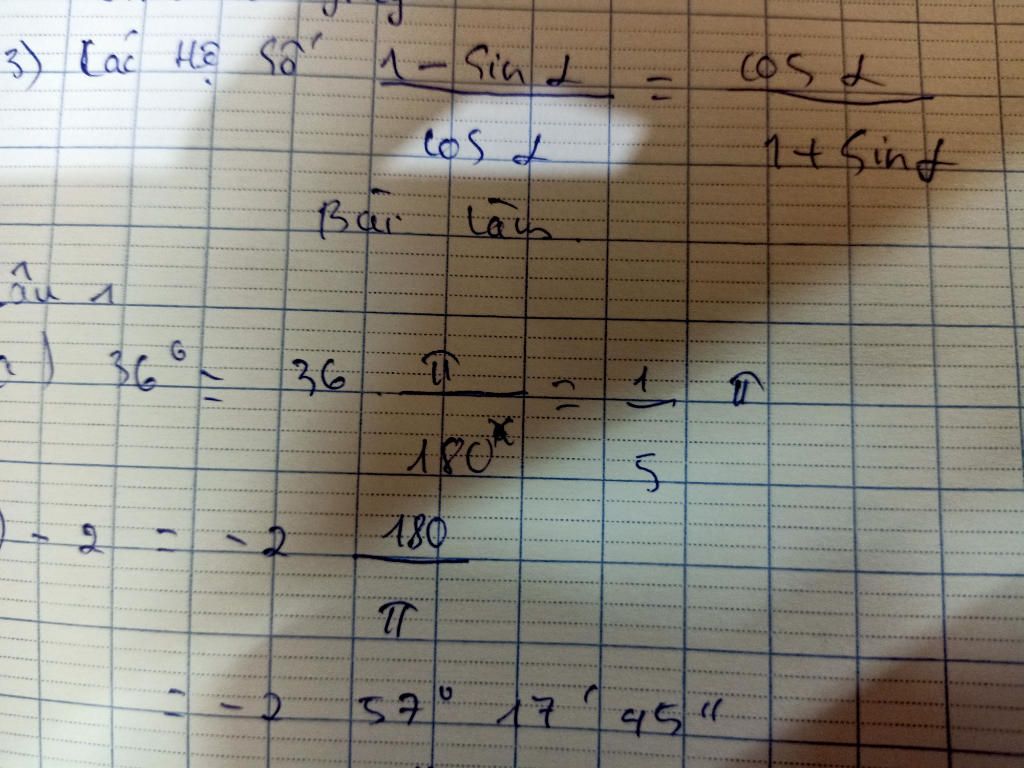 3) Các Hệ Số 1 - Sin α / cos α = cos α / 1 + Sin α
Bài làm
Câu 1
a) 36° = 36 . π / 180 = 1 / 5 π
) - 2 = - 2 180 / π
= - 2 57° 17' 45"